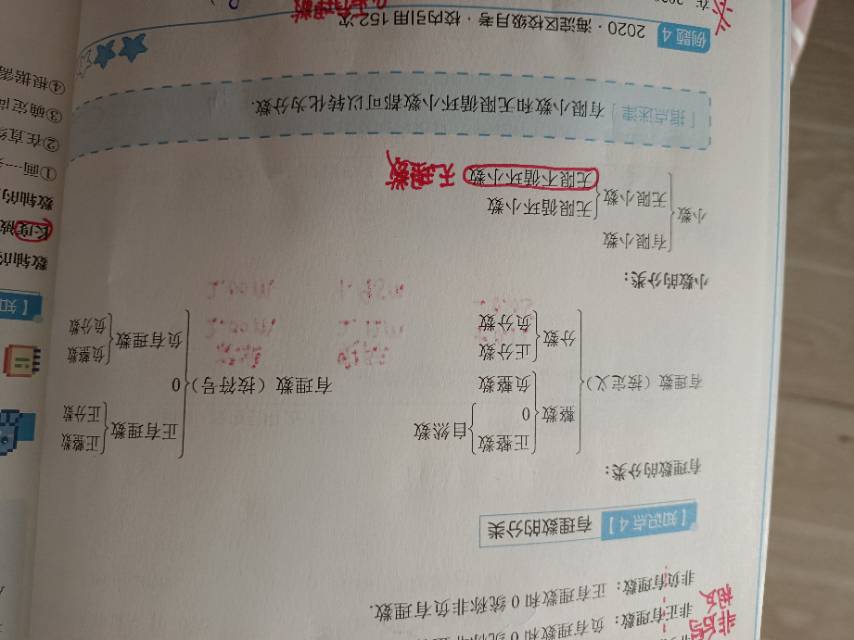 非正有理数：负有理数和 0 统称非正
非负有理数：正有理数和 0 统称非负有理数.
相反
【知识点4】 有理数的分类
有理数的分类：
有理数（按定义）
整数
正整数
0
自然数
负整数
分数
正分数
负分数
有理数（按符号）
正有理数
正整数
正分数
0
负有理数
负整数
负分数
小数的分类：
小数
有限小数
无限小数
无限循环小数
无限不循环小数 无理数
有限小数和无限循环小数都可以转化为分数.
例题4 2020·海淀区校级月考·校内引用152次
【知
数轴的
长度
数轴的
①画一
②在直
③确定
④根据